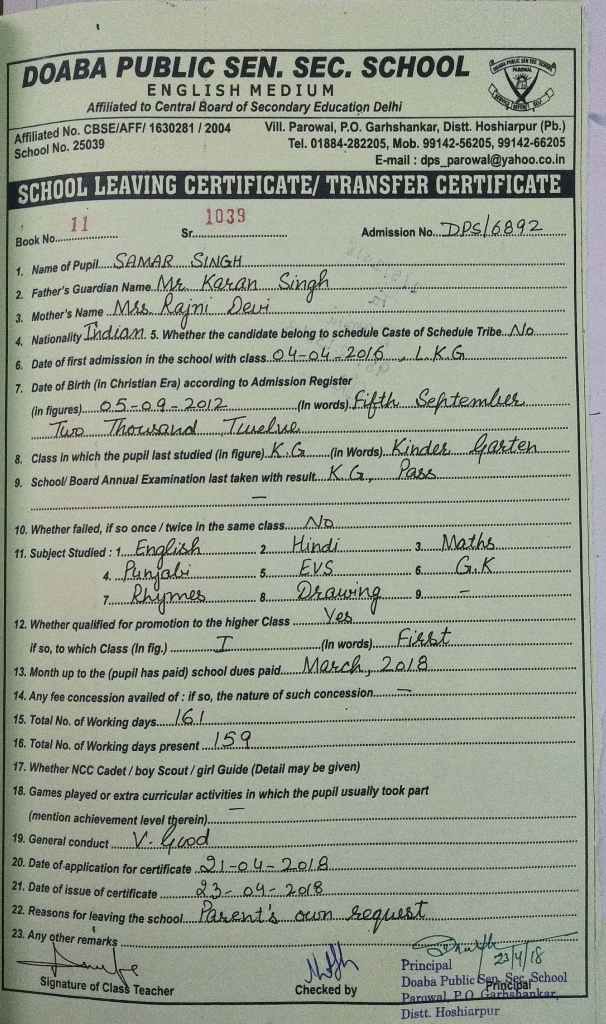 DOABA PUBLIC SEN. SEC. SCHOOL
ENGLISH MEDIUM
Affiliated to Central Board of Secondary Education Delhi
DOABA PUBLIC SEN. SEC. SCHOOL
PAROWAL
Affiliated No. CBSE/AFF/ 1630281 / 2004
School No. 25039
Vill. Parowal, P.O. Garhshankar, Distt. Hoshiarpur (Pb.)
Tel. 01884-282205, Mob. 99142-56205, 99142-66205
E-mail : dps_parowal@yahoo.co.in
SCHOOL LEAVING CERTIFICATE/ TRANSFER CERTIFICATE
Book No. 11 Sr. 1039 Admission No. DPS/6892
1. Name of Pupil SAMAR SINGH
2. Father's Guardian Name Mr. Karan Singh
3. Mother's Name Mrs. Rajni Devi
4. Nationality Indian 5. Whether the candidate belong to schedule Caste of Schedule Tribe No
6. Date of first admission in the school with class 04-04-2016, L.K.G
7. Date of Birth (in Christian Era) according to Admission Register
(in figures) 05-09-2012 (In words) Fifth September
Two Thousand Twelve
8. Class in which the pupil last studied (in figure) K.G (in Words) Kinder Garten
9. School/ Board Annual Examination last taken with result K.G, Pass
—
10. Whether failed, if so once / twice in the same class No
11. Subject Studied : 1. English 2. Hindi 3. Maths
4. Punjabi 5. EVS 6. G.K
7. Rhymes 8. Drawing 9. –
12. Whether qualified for promotion to the higher Class Yes
if so, to which Class (In fig.) I (In words) First
13. Month up to the (pupil has paid) school dues paid March, 2018
14. Any fee concession availed of : if so, the nature of such concession —
15. Total No. of Working days 161
16. Total No. of Working days present 159
17. Whether NCC Cadet / boy Scout / girl Guide (Detail may be given)
18. Games played or extra curricular activities in which the pupil usually took part
(mention achievement level therein) —
19. General conduct V. Good
20. Date of application for certificate 21-04-2018
21. Date of issue of certificate 23-04-2018
22. Reasons for leaving the school Parent's own request
23. Any other remarks
23/4/18
Signature of Class Teacher
Checked by
Principal
Principal
Doaba Public Sen. Sec. School
Parowal, P.O. Garhshankar,
Distt. Hoshiarpur